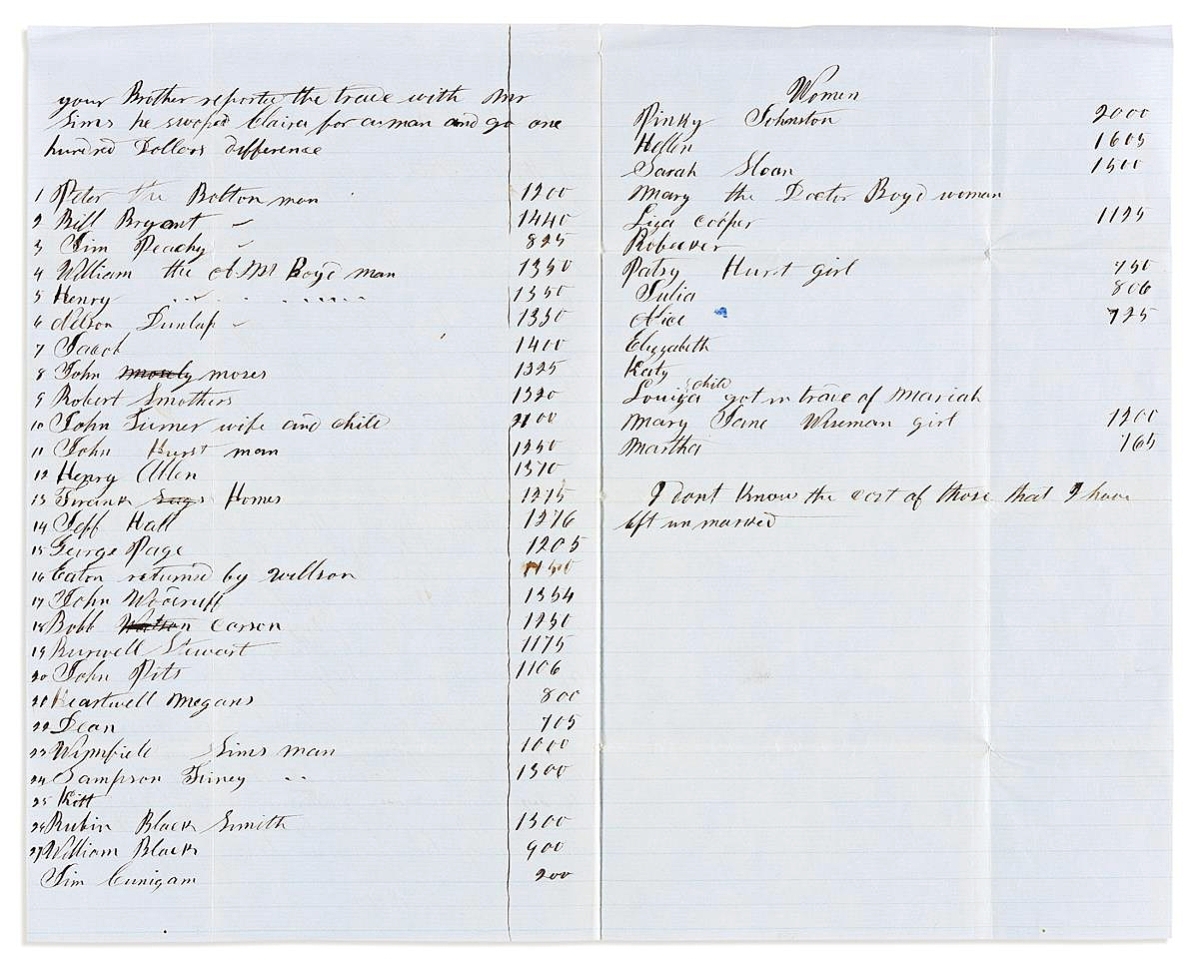 your Brother reported the trade with Mr
Sims he swoped Claira for a man and go one
hundred Dollars difference
1 Peter the Bolton man 1200
2 Bill Bryant 1440
3 Jim Peachy 825
4 William the Boyd man 1350
5 Henry " " " " " " 1350
6 Nelson Dunlap 1330
7 1400
8 John mosely moses 1325
9 Robert Smothers 1320
10 John Turner wife and child 2100
11 John Hurst man 1250
12 Henry Allen 1370
13 Frank Homes 1275
14 Jeff Hall 1276
15 George Page 1205
16 Eaton returnd by willson
17 John Woodruff 1354
18 Bobb Watson Carson 1250
19 Burwell Stewart 1175
20 John Pits 1106
21 Heartwell megans 800
22 Dean 705
23 Winfield Sims man 1000
24 Sampson " " 1300
25 Kitt
26 Rubin Black Smith 1300
27 William Black 900
Jim Cunigam 200
Women
Pinky Johnston 2000
Hellen 1605
Sarah Sloan 1500
Mary the Doctor Boyd woman
Liza Cooper 1125
Patsy Hurst girl 750
Julia 806
725
Elizzabeth
Katy
Louiza child got in trade of Mariah
Mary Jane Wiseman girl 1200
Martha 765
I dont Know the cost of those that I have
left unmarked